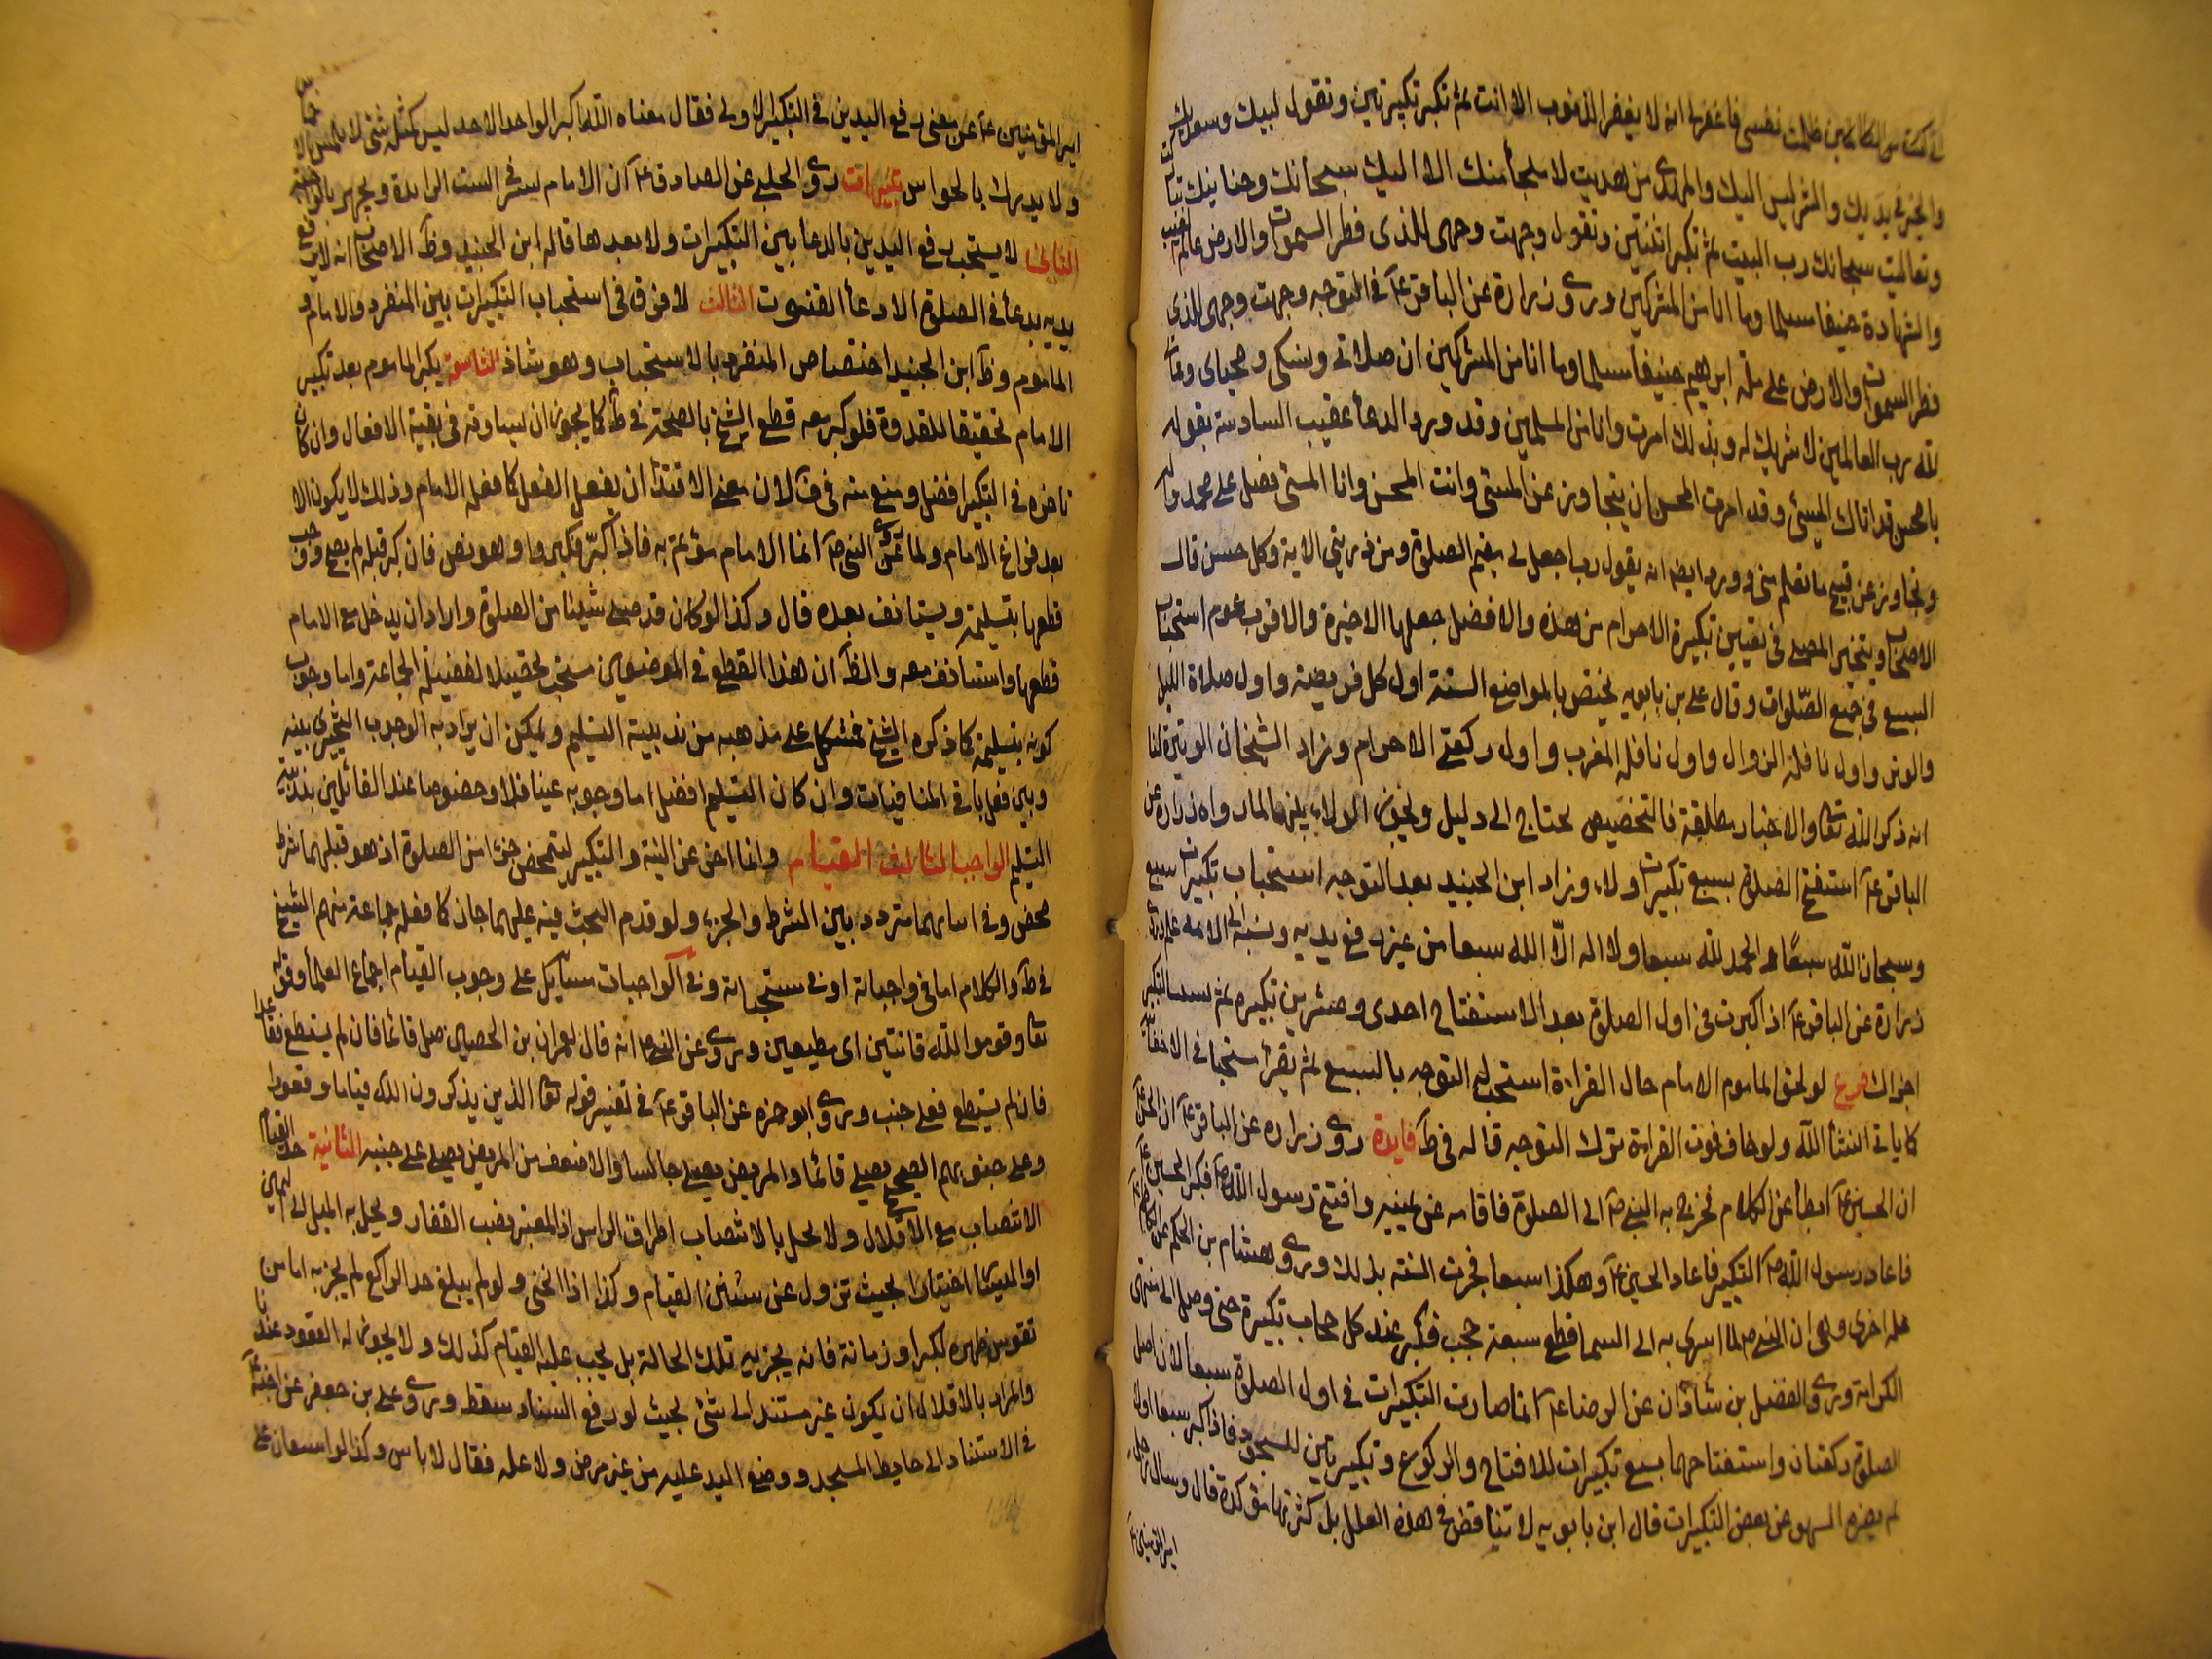 ظلمت نفسى فاغفرلى انه لا يغفر الذنوب الا انت ثم تكبر تكبيرتين وتقول لبيك وسعديك
والخير فى يديك والشر ليس اليك والمهدى من هديت لا ملجأ منك الا اليك سبحانك وحنانيك تباركت
وتعاليت سبحانك رب البيت ثم تكبر اثنتين وتقول وجهت وجهى للذى فطر السموات والارض عالم الغيب
والشهادة حنيفا مسلما وما انا من المشركين وروى زرارة عن الباقر عـ فى التوجه وجهت وجهى للذى
فطر السموات والارض على ملة ابرهيم حنيفا مسلما وما انا من المشركين ان صلاتى ونسكى ومحياى ومماتى
لله رب العالمين لا شريك له وبذلك امرت وانا من المسلمين وقد ورد الدعأ عقيب السادسة بقوله
يا محسن قد اتاك المسئ وقد امرت المحسن ان يتجاوز عن المسئ وانت المحسن وانا المسئ فصل على محمد واله
وتجاوز عن قبيح ما تعلم منى وورد ايضا انه يقول رب اجعلنى مقيم الصلوة ومن ذريتى الاية وكل حسن قال
الاصحاب ويتخير المصلى فى تعيين تكبيرة الاحرام من هذه والافضل جعلها الاخيرة والاقرب عموم استحباب
السبع فى جميع الصلوات وقال على بن بابويه يختص بالمواضع الستة اول كل فريضة واول صلاة الليل
والوتر واول نافلة الزوال واول نافلة المغرب واول ركعتى الاحرام وزاد الشيخان الوتيرة لنا
انه ذكر الله تعا والاخبار مطلقة فالتخصيص يحتاج الى دليل ويجوز الولاء بينها لما رواه زرارة عن
الباقر عـ استفتح الصلوة بسبع تكبيرات ولاء وزاد ابن الجنيد بعد التوجه استحباب تكبيرات سبع
وسبحان الله سبعا والحمد لله سبعا ولا اله الا الله سبعا من غير رفع يديه ونسبه الى الائمة وروى
زرارة عن الباقر عـ اذا كبرت فى اول الصلوة بعد الاستفتاح احدى وعشرين تكبيره ثم نسيت التكبير
اجزاك فرع لو لحق الماموم الامام حال القراءة استحب له التوجه بالسبع ثم يقرأ مستحبا فى الاخفاتية
كما ياتى انشأ الله ولو خاف فوت القراءة ترك التوجه قاله فى ط فايدة روى زرارة عن الباقر عـ
ان الحسين عـ ابطأ عن الكلام فخرج به النبى صـ الى الصلوة فاقامه عن يمينه وافتتح رسول الله صـ فكبر الحسين
فاعاد رسول الله صـ التكبير فاعاد الحسين عـ وهكذا سبعا فجرت السنة بذلك وروى هشام بن الحكم عن الكاظم
علة اخرى وهى ان النبى صـ لما اسرى به الى السما قطع سبعة حجب فكبر عند كل حجاب تكبيرة حتى وصل الى منتهى
الكرامة وروى الفضل بن شاذان عن الرضا عـ انما صارت التكبيرات فى اول الصلوة سبعا لان اصل
الصلوة ركعتان واستفتاحهما بسبع تكبيرات للافتتاح والركوع وتكبيرتين للسجود فاذا كبر سبعا اول
لم يضره السهو عن بعض التكبيرات قال ابن بابويه لا تناقض فى هذه العلل بل كثرتها مؤكدة قال وسال رجل
امير المؤمنين عـ
امير المؤمنين عـ عن معنى رفع اليدين فى التكبيرة الاولى فقال معناه الله اكبر الواحد الاحد ليس كمثله شئ لا يلمس بالاخماس
ولا يدرك بالحواس تنبيهات روى الحلبى عن الصادق عـ ان الامام يسر فى الست الزايدة ويجهر بالواحدة
الثانى لا يستحب رفع اليدين بالدعا بين التكبيرات ولا بعدها قاله ابن الجنيد وظ الاصحاب انه لا يرفع
يديه بدعأ فى الصلوة الا دعأ القنوت الثالث لا فرق فى استحباب التكبيرات بين المنفرد والامام و
الماموم وظ ابن الجنيد اختصاص المنفرد بالاستحباب وهو شاذ التاسعة يكبر الماموم بعد تكبير
الامام تحقيقا للقدوة فلو كبر معه قطع الشيخ بالصحة فى ف كما يجوز ان يساوقه فى بقية الافعال وان كان
تاخره فى التكبير افضل ومنع منه فى ط لان معنى الاقتدأ ان يفعل الفعل كما فعله الامام وذلك لا يكون الا
بعد فراغ الامام ولما روى عن النبى صـ انما الامام مؤتم به فاذا كبر فكبروا وهو نص فان كبر قبله لم يصح ووجب
قطعها بتسليمة ويستانف بعده قال وكذا لو كان قد صلى شيئا من الصلوة واراد ان يدخل مع الامام
قطعها واستانف معه والظ ان هذا القطع فى الموضعين مستحب تحصيلا لفضيلة الجماعة واما وجوب
كونه بتسليمة كما ذكره الشيخ فمشكل على مذهبه من ندبية التسليم ويمكن ان يراد به الوجوب التخييرى بينه
وبين فعل باقى المنافيات وان كان التسليم افضل اما وجوبه عينا فلا وخصوصا عند القائلين بندبية
التسليم الواجب الثالث القيام وانما اخر عن النية والتكبير ليتمحض جزءا من الصلوة اذ هو قبلهما شرط
محض وفى اثنائهما متردد بين الشرط والجزء ولو قدم البحث فيه عليهما جاز كما فعله جماعة منهم الشيخ
فى ط والكلام اما فى واجباته او فى مستحباته وفى الواجبات مسايل على وجوب القيام اجماع العلمأ وقوله
تعا وقوموا لله قانتين اى مطيعين وروى عن النبى صـ انه قال لعمران بن الحصين صل قائما فان لم يستطع فقاعدا
فان لم يستطع فعلى جنب وروى ابو حمزه عن الباقر عـ فى تفسير قوله تعا الذين يذكرون الله قياما وقعودا
وعلى جنوبهم الصحيح يصلى قائما والمريض يصلى جالسا والاضعف من المريض يصلى على جنبه الثانية حد القيام
الانتصاب مع الاقلال ولا يخل بالانتصاب اطراق الراس اذ المعتبر نصب الفقار ويخل به الميل الى اليمين
او الميسرة اختيارا بحيث تزول عن سنن القيام وكذا اذا انحنى ولو لم يبلغ حد الراكع لم يجز به اما من
تقوس ظهره لكبر او زمانة فانه يجزيه تلك الحالة بل يجب عليه القيام كذلك ولا يجوز له القعود عندنا
والمراد بالاقلال ان يكون غير مستند الى شئ بحيث لو رفع السناد سقط وروى على بن جعفر عن اخيه
فى الاستناد الى حايط المسجد ووضع اليد عليه من غير مرض ولا علة فقال لا باس وكذا لو استعان على